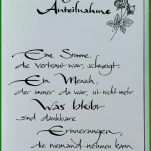 Anteilnahme
Eine Stimme,
die vertraut war, schweigt.
Ein Mensch,
der immer da war, ist nicht mehr.
Was bleibt
sind dankbare
Erinnerungen,
die niemand nehmen kann.